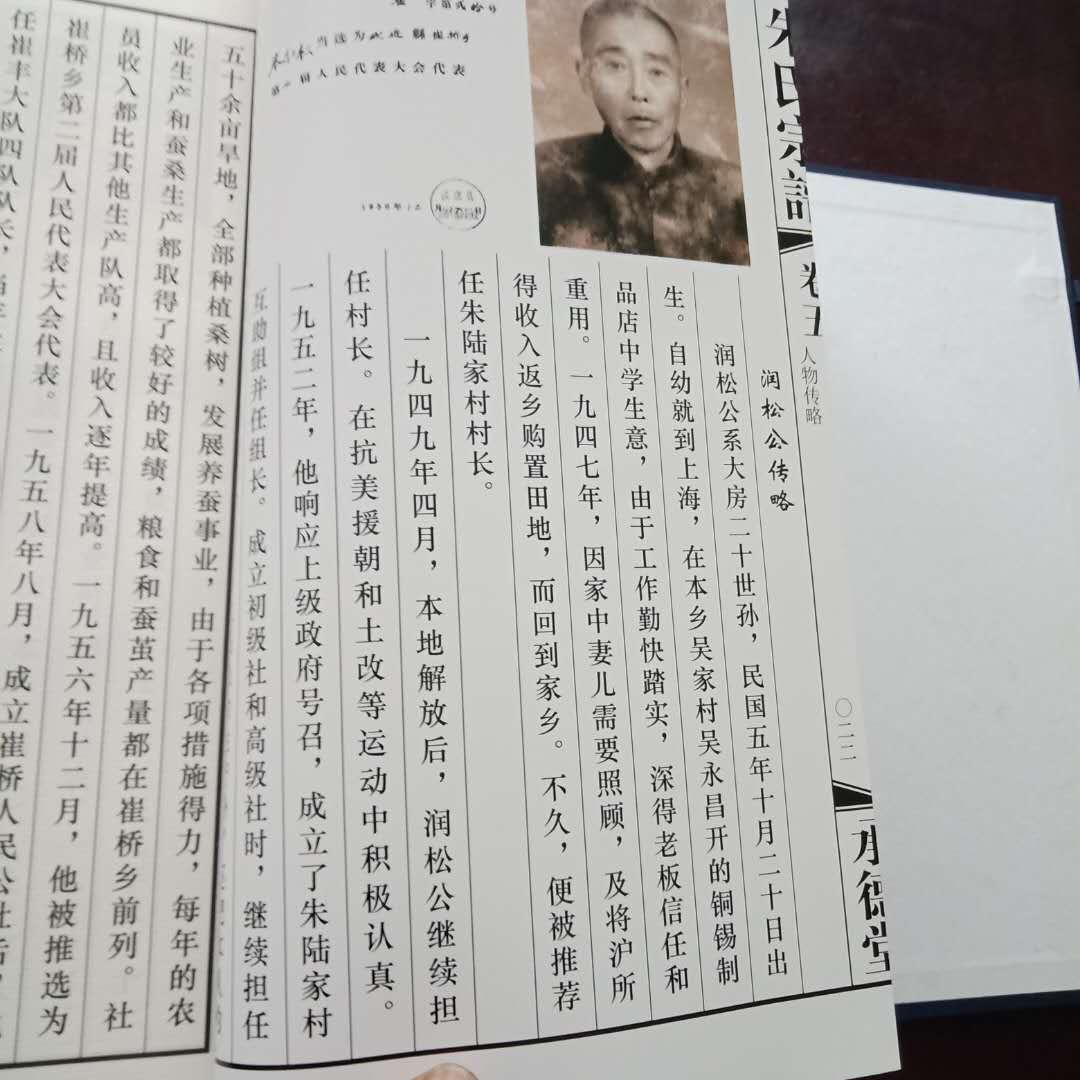 朱氏宗譜
卷五
人物传略
〇二二
承德堂
当选为武进縣崔桥乡
人民代表大会代表
润松公传略
润松公系大房二十世孙，民国五年十月二十日出
生。自幼就到上海，在本乡吴家村吴永昌开的铜锡制
品店中学生意，由于工作勤快踏实，深得老板信任和
重用。一九四七年，因家中妻儿需要照顾，及将沪所
得收入返乡购置田地，而回到家乡。不久，便被推荐
任朱陆家村村长。
一九四九年四月，本地解放后，润松公继续担
任村长。在抗美援朝和土改等运动中积极认真。
一九五二年，他响应上级政府号召，成立了朱陆家村
互助组并任组长。成立初级社和高级社时，继续担任
五十余亩旱地，全部种植桑树，发展养蚕事业，由于各项措施得力，每年的农
业生产和蚕桑生产都取得了较好的成绩，粮食和蚕茧产量都在崔桥乡前列。社
员收入都比其他生产队高，且收入逐年提高。一九五六年十二月，他被推选为
崔桥乡第二届人民代表大会代表。一九五八年八月，成立崔桥人民公社后，
任崔丰大队四队队长，